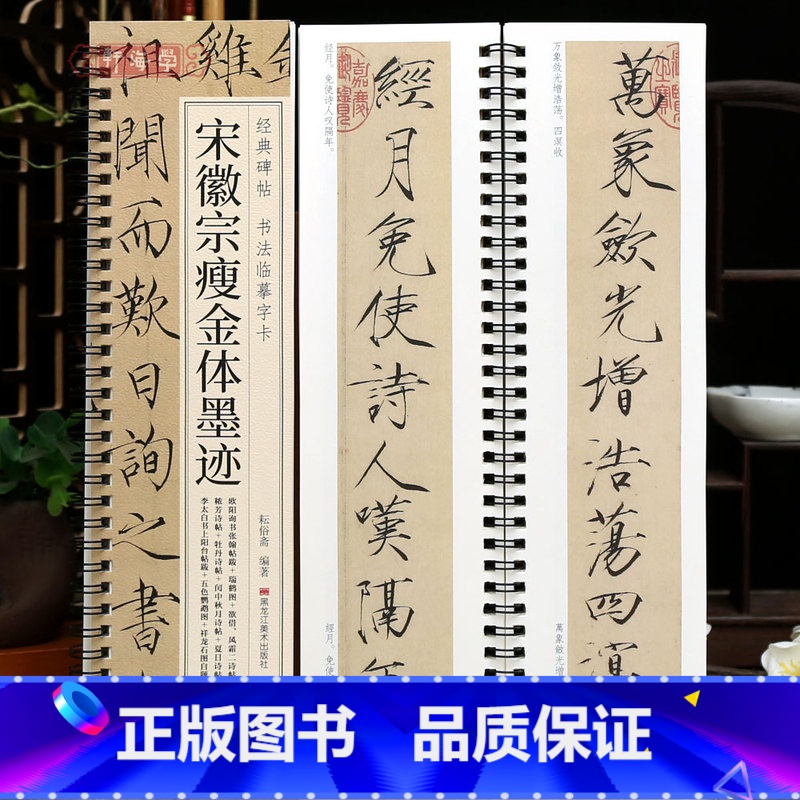 軒海學
祖雞
聞而歎曰詢之書
经典碑帖 书法临摹字卡
宋徽宗瘦金体墨迹
耘俗斋 编著
黑龙江美术出版社
欧阳询书张翰帖跋+瑞鹤图+欲借、风霜二诗帖
秾芳诗帖+牡丹诗帖+闰中秋月诗帖+夏日诗帖
李太白书上阳台帖跋+五色鹦鹉图+祥龙石图自题
经月。免使诗人叹隔年。
嘉慶御覽
經月免使詩人嘆隔年
经月。免使
万象敛光增浩荡。四溟收
萬象斂光增浩蕩四溟
萬象敛光增
正版图书 品质保证